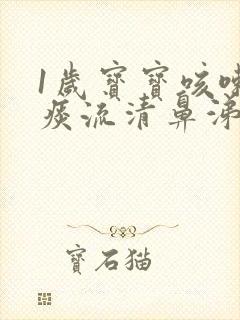 1歲寶寶咳嗽
痰流清鼻涕
寶石猫